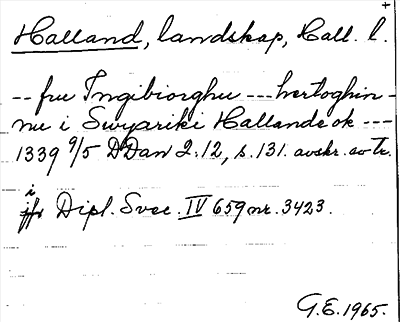 +
Halland, landskap, Hall. l.
-- frue Ingibiorghu --- hertoghin-
nu i Swyariki Hallande ok ---
1339 9/5 DDan 2.12, s.131. avskr. av tr.
i
jfr Dipl. Svec. IV 659 nr. 3423.
G.E. 1965.